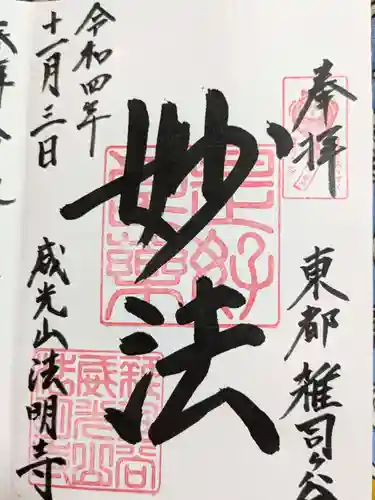 奉拝
東都 雑司ヶ谷
妙法
令和四年
十一月三日
威光山法明寺